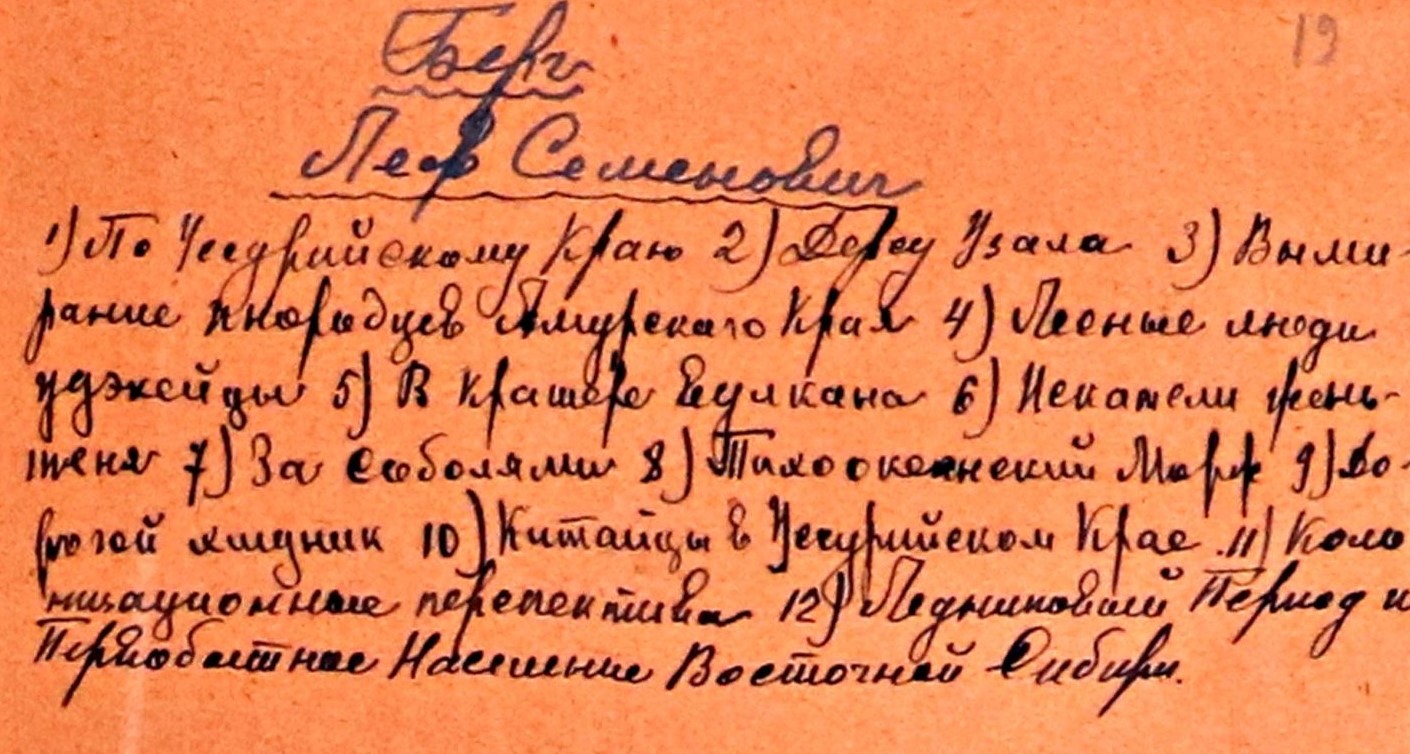 19
Берг
Лев Семенович
1) По Уссурийскому Краю 2) Дерсу Узала 3) Выми-
рание инородцев Амурского Края 4) Лесные люди
удэхейцы 5) В кратере вулкана 6) Искатели жень-
шеня 7) За соболями 8) Тихоокеанский Морж 9) До-
рогой хищник 10) Китайцы в Уссурийском Крае. 11) Коло
низационные перспектива 12) Ледниковый Период и
Первобытное Население Восточной Сибири.